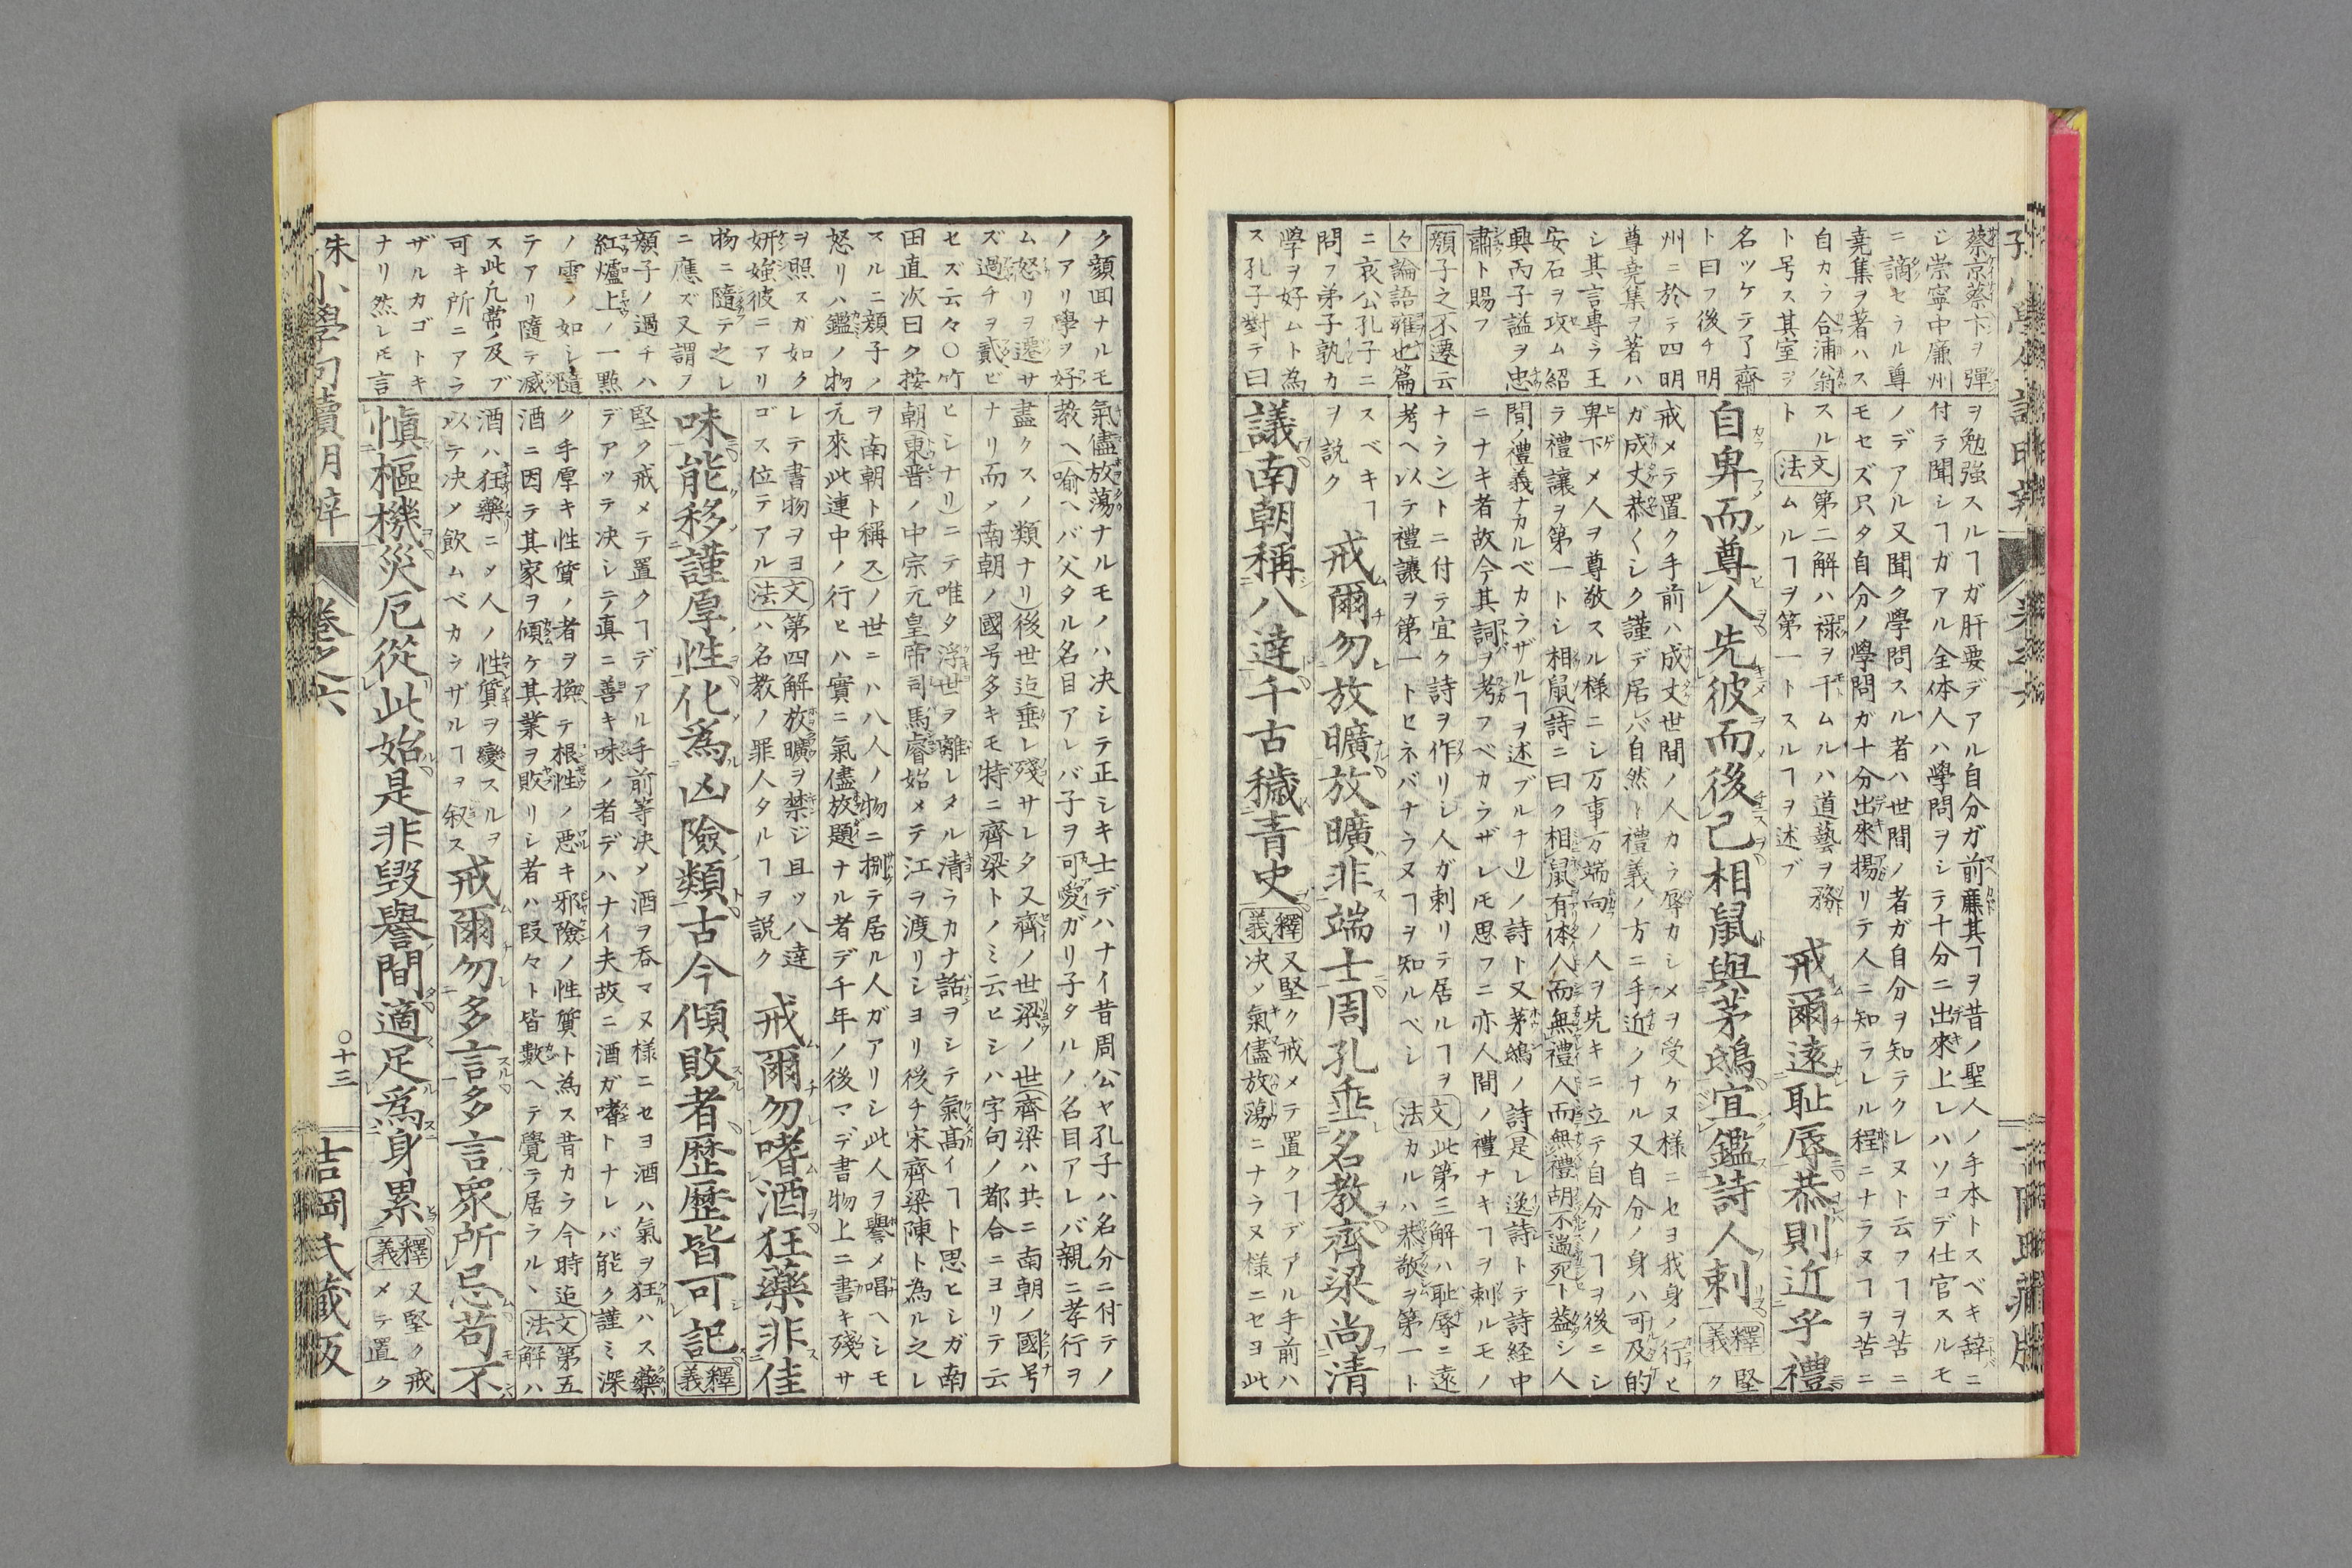 蔡京蔡卞ヲ彈
ジ崇寧中廉州
ニ謫セラル尊
堯集ヲ著ハス
自カラ合浦翁
ト号ス其室ヲ
名ツケテ了齋
ト曰フ後チ明
州ニ於テ四明
尊堯集ヲ著ハ
シ其言專ラ王
安石ヲ攻ム紹
興丙子謚ヲ忠
肅ト賜フ
顏子之不遷云
々論語雍也篇
ニ哀公孔子ニ
問フ弟子孰カ
學ヲ好ムト為
ス孔子對テ曰
ヲ勉強スルヿガ肝要デアル自分ガ前廉其ヿヲ昔ノ聖人ノ手本トスベキ辞ニ
付テ聞シヿガアル全体人ハ學問ヲシテ十分ニ出來上レハソコデ仕官スルモ
ノデアル又聞ク學問スル者ハ世間ノ者ガ自分ヲ知テクレヌト云フヿヲ苦ニ
モセズ只タ自分ノ學問ガ十分出來揚リテ人ニ知ラレル程ニナラヌヿヲ苦ニ
スル文法第二解ハ祿ヲ干ムルハ道藝ヲ務
ムルヿヲ第一トスルヿヲ述ブ
戒爾遠恥辱恭則近乎禮
自卑而尊人先彼而後己相鼠與茅鴟宜鑑詩人刺
釋義堅ク
戒メテ置ク手前ハ成丈世間ノ人カラ辱カシメヲ受ケヌ様ニセヨ我身ノ行ヒ
ガ成丈恭〱シク謹デ居レバ自然ト禮義ノ方ニ手近クナル又自分ノ身ハ可及的
卑下メ人ヲ尊敬スル様ニシ万事方端向ノ人ヲ先キニ立テ自分ノヿヲ後ニシ
ラ禮讓ヲ第一トシ相鼠(詩ニ曰ク相鼠有体人而無禮人而無禮胡不遄死ト蓋シ人
間ノ禮義ナカルベカラザルヿヲ述ブルナリ)ノ詩ト又茅鴟ノ詩(是レ逸詩トテ詩経中
ニナキ者故今其詞ヲ考フベカラザレ𪜈思フニ亦人間ノ禮ナキヿヲ刺ルモノ
ナラン)トニ付テ宜ク詩ヲ作リシ人ガ刺リテ居ルヿヲ
考ヘ以テ禮讓ヲ第一トセネバナラヌヿヲ知ルベシ
文法此第三解ハ恥辱ニ遠
カルハ恭敬ヲ第一ト
スベキヿ
ヲ説ク
戒爾勿放曠放曠非端士周孔垂名教齊梁尚清
議南朝稱八達千古穢青史
釋義又堅ク戒メテ置クヿデアル手前ハ
决〆氣儘放蕩ニナラヌ様ニセヨ此
ク顏囬ナルモ
ノアリ學ヲ好
ム怒リヲ遷サ
ズ過チヲ貳ビ
セズ云々〇竹
田直次曰ク按
スルニ顏子ノ
怒リハ鑑ノ物
ヲ照スガ如ク
妍媸彼ニアリ
物ニ隨テ之レ
ニ應ズ又謂フ
顏子ノ過チハ
紅爐上ノ一點
ノ雪ノ如シ隨
テアリ隨テ滅
ス此凡常ノ及ブ
可キ所ニアラ
ザルカゴトキ
ナリ然レ𪜈言
氣儘放蕩ナルモノハ决シテ正シキ士デハナイ昔周公ヤ孔子ハ名分ニ付テノ
教ヘ(喻ヘバ父タル名目アレバ子ヲ可愛ガリ子タルノ名目アレバ親ニ孝行ヲ
盡クスノ類ナリ)後世迠垂レ殘サレタ又齊ノ世梁ノ世(齊梁ハ共ニ南朝ノ國号
ナリ而〆南朝ノ國号多キモ特ニ齊梁トノミ云ヒシハ字句ノ都合ニヨリテ云
ヒシナリ)ニテ唯タ浮世ヲ離レタル清ラカナ話ヲシテ氣髙イヿト思ヒシガ南
朝(東晋ノ中宗元皇帝司馬睿始メテ江ヲ渡リシヨリ後チ宋齊梁陳ト為ル之レ
ヲ南朝ト稱ス)ノ世ニハ八人ノ物ニ捌テ居ル人ガアリシ此人ヲ譽メ唱ヘシモ
元來此連中ノ行ヒハ實ニ氣儘放題ナル者デ千年ノ後マデ書物上ニ書キ殘サ
レテ書物ヲヨ
ゴス位テアル
文法第四解放曠ヲ禁ジ且ツ八達
ハ名教ノ罪人タルヿヲ説ク
戒爾勿嗜酒狂藥非佳
味能移謹厚性化為凶險類古今傾敗者歴歴皆可記
釋義
堅ク戒メテ置クヿデアル手前等决〆酒ヲ呑マヌ様ニセヨ酒ハ氣ヲ狂ハス藥
デアッテ决シテ真ニ善キ味ノ者デハナイ夫故ニ酒ガ嗜トナレバ能ク謹ミ深
ク手厚キ性質ノ者ヲ換テ根性ノ悪キ邪險ノ性質ト為ス昔カラ今時迠
酒ニ因テ其家ヲ傾ケ其業ヲ敗リシ者ハ段々ト皆數ヘテ覺テ居ラル丶
文法第五
解ハ
酒ハ狂藥ニ〆人ノ性質ヲ變スルヲ
以テ决〆飲ムベカラザルヿヲ叙ス
戒爾勿多言多言衆所忌苟不
慎樞機災厄從此始是非毀譽間適足為身累
釋義又堅ク戒
メテ置ク
朱小學句讀明辨
卷之六
〇十三
吉岡氏藏版